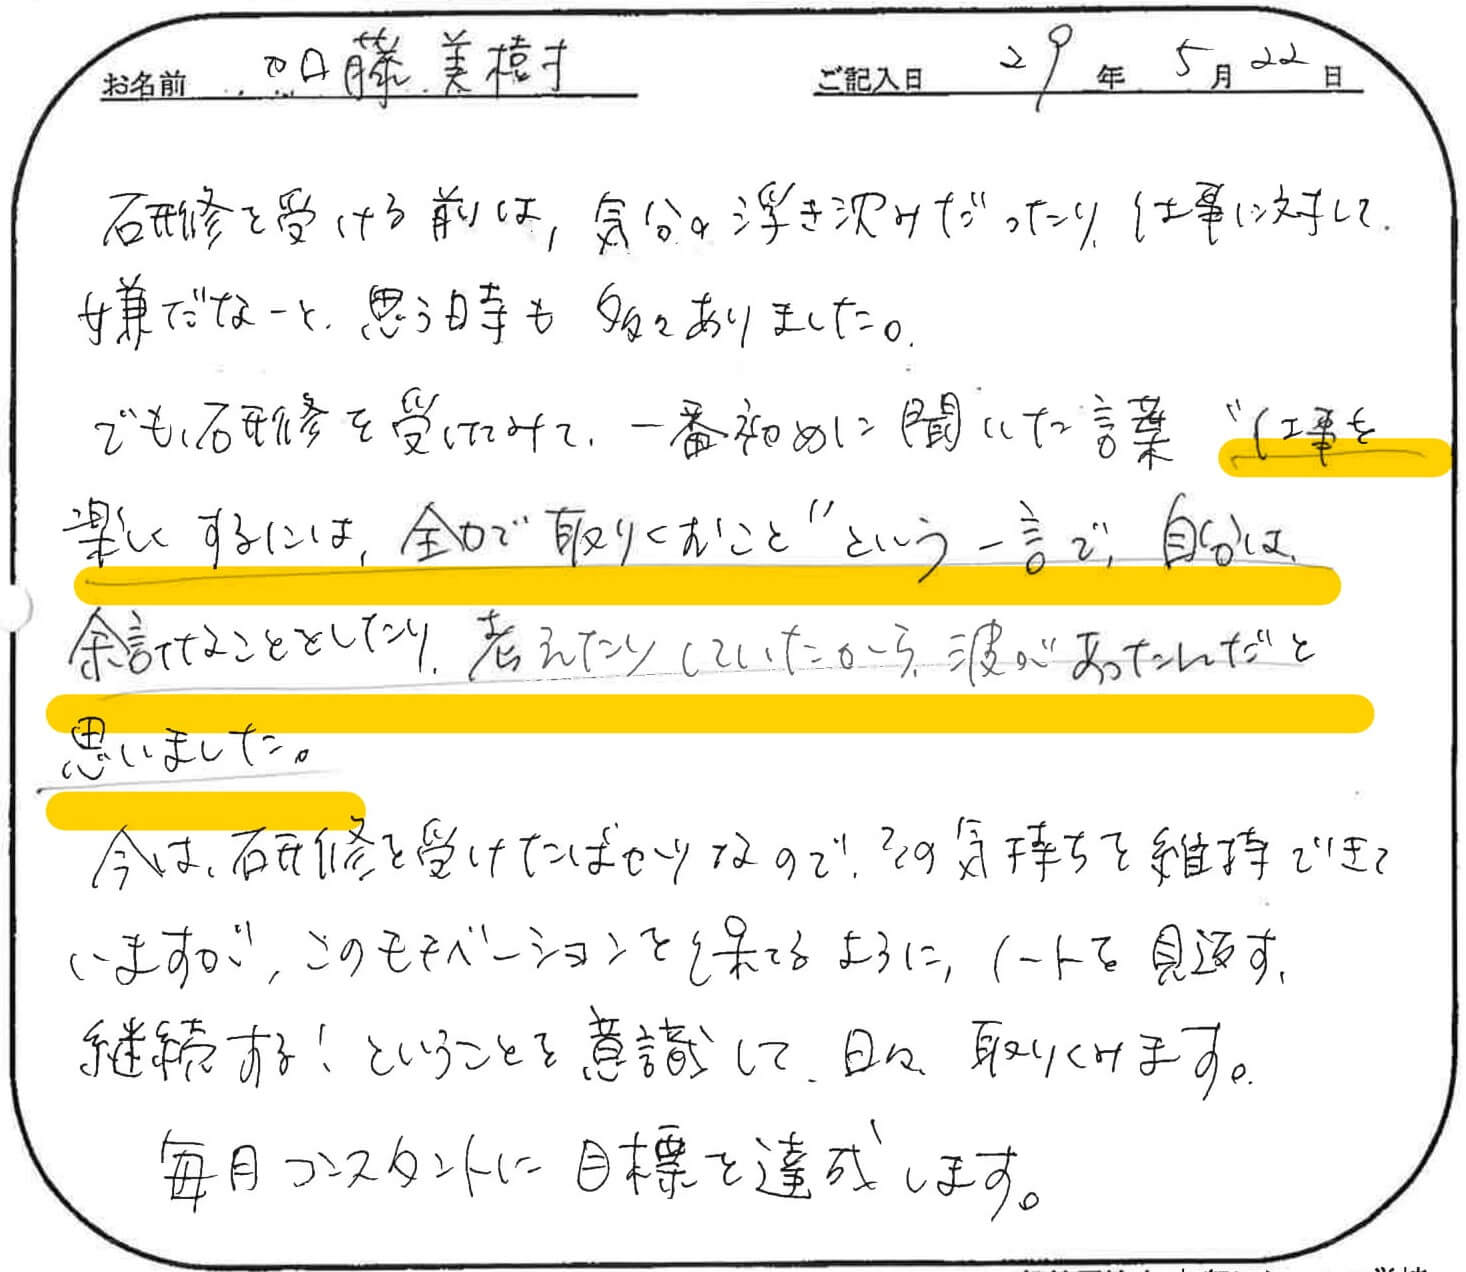 お名前 加藤美樹 ご記入日 29年5月22日
研修を受ける前は、気分の浮き沈みだったり、仕事に対して、
嫌だなーと、思う時も多々ありました。
でも、研修を受けてみて、一番初めに聞いた言葉〝仕事を
楽しくするには、全力で取りくむこと〟という一言で、自分は、
余計なことをしたり、考えたりしていたから、波があったんだと
思いました。
今は、研修を受けたばかりなので、この気持ちを維持できて
いますが、このモチベーションを保てるように、ノートを見返す、
継続する!ということを意識して、日々、取りくみます。
毎月コンスタントに目標を達成します。